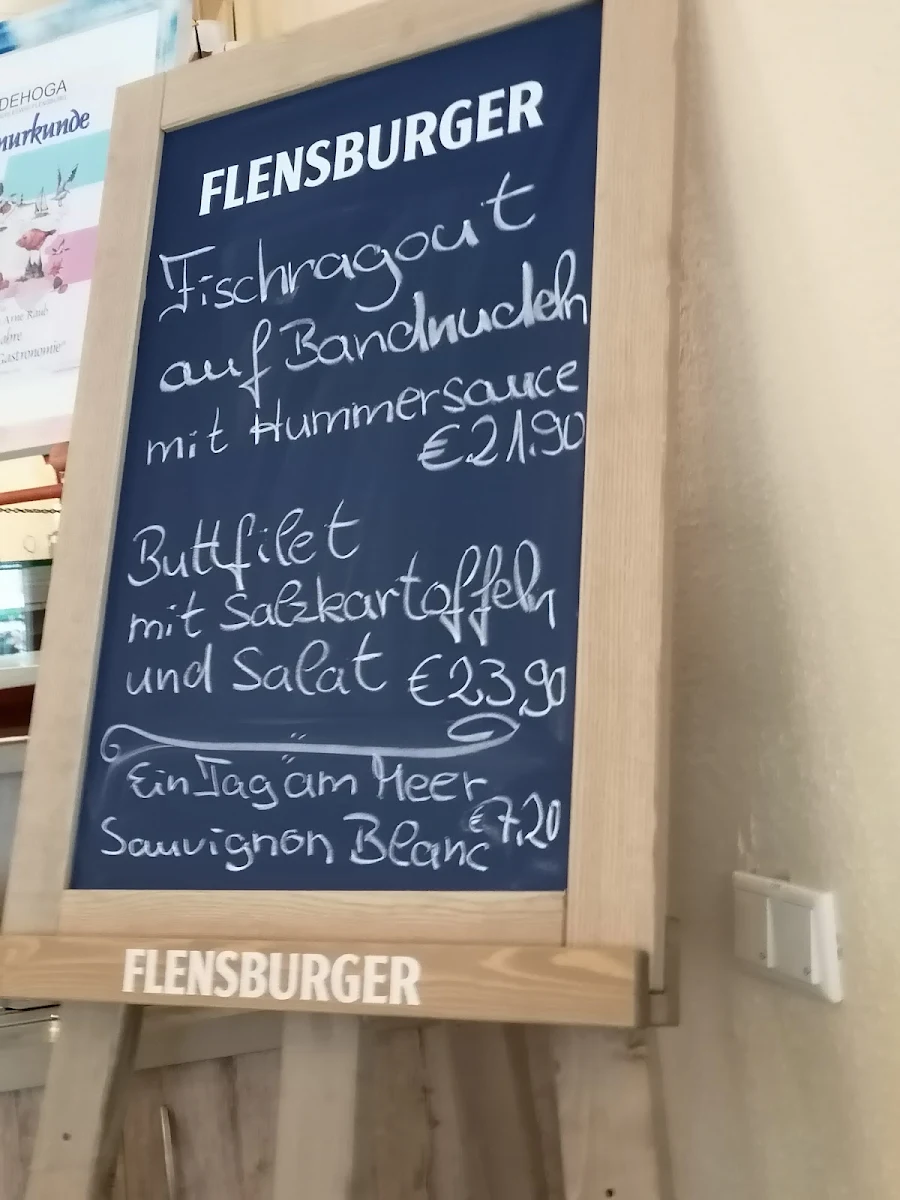 DEHOGA
nurkunde
Arne Raab
Gastronomie"
FLENSBURGER
Fischragout
auf Bandnudeln
mit Hummersauce
€21.90
Buttfilet
mit Salzkartoffeln
und Salat €23,90
"Ein Tag am Meer"
Sauvignon Blanc €7,20
FLENSBURGER